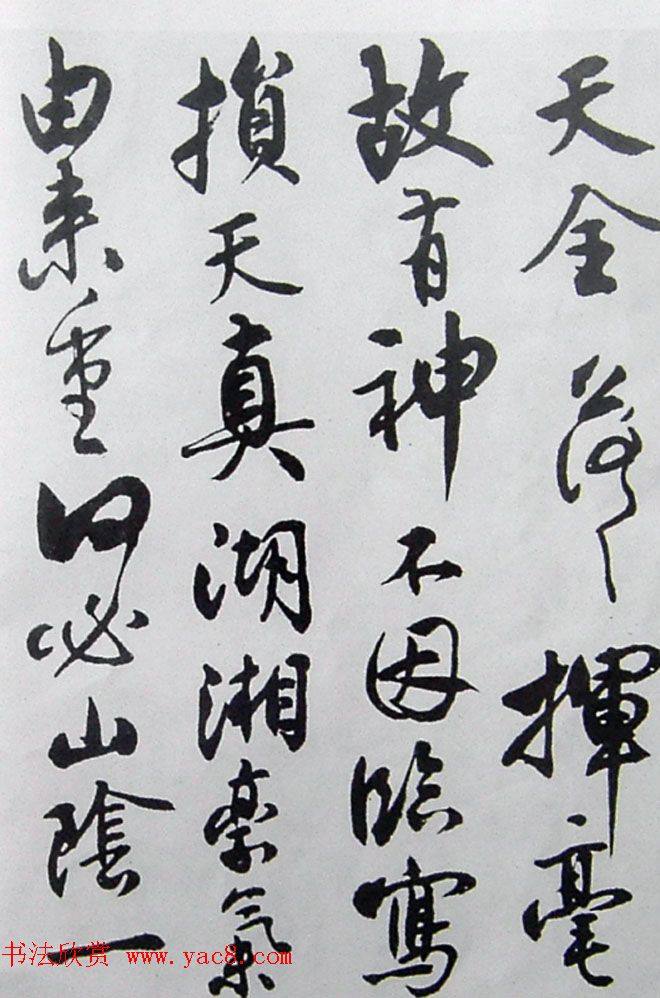 天全落〻揮毫
故有神不因臨寫
損天真湖湘豪氣
由来重何必山陰一
书法欣赏 www.yac8.com